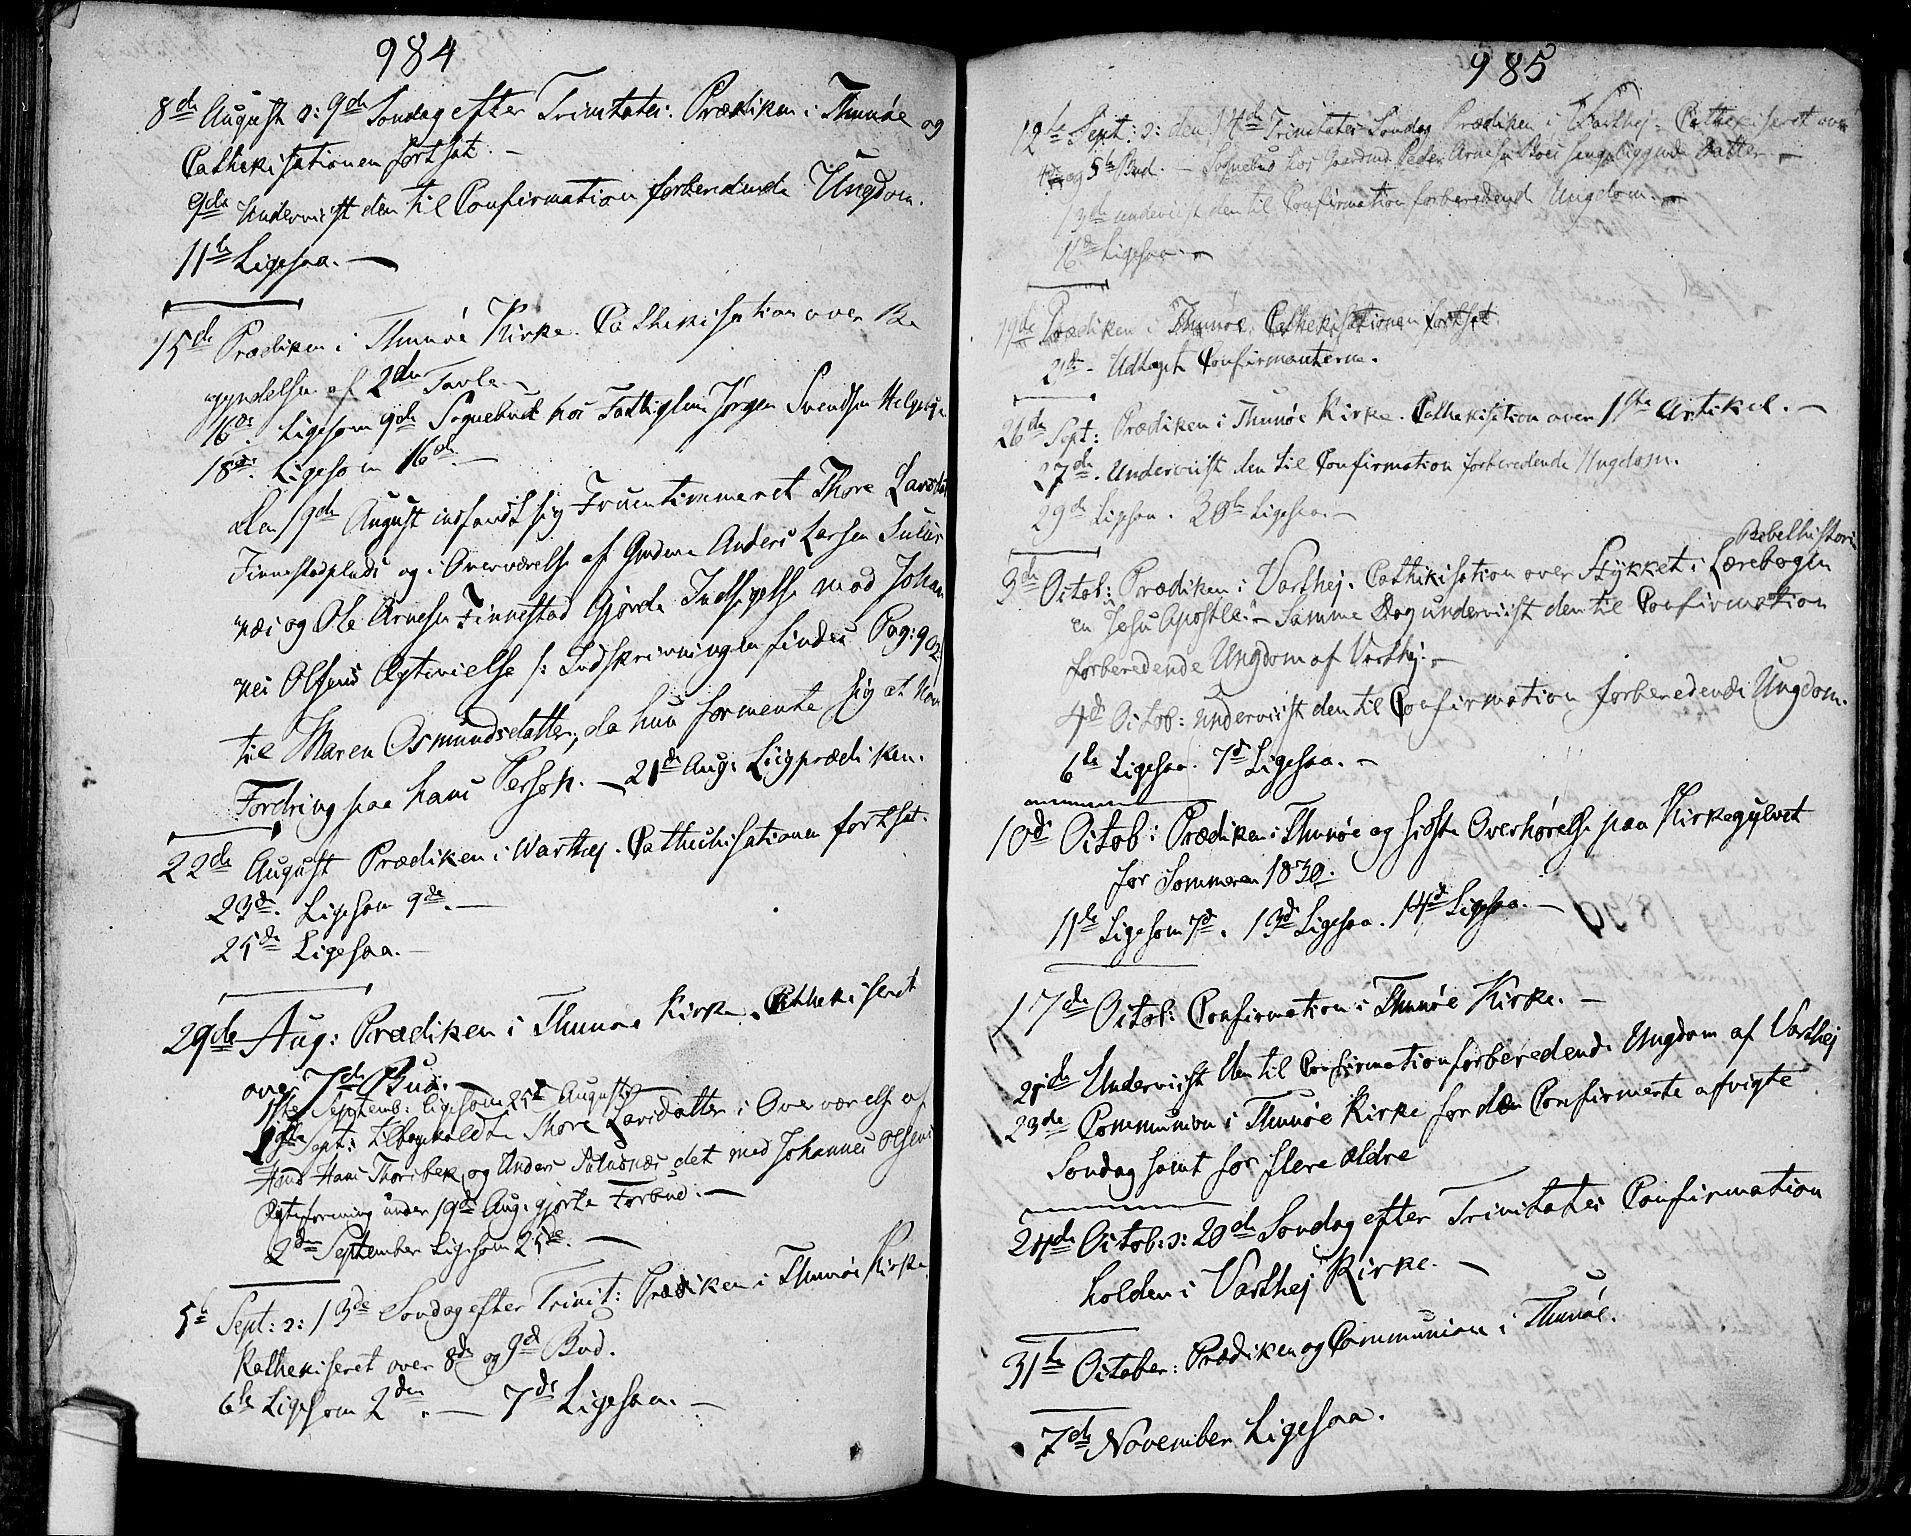 984
8de August ɔ: 9de Søndag efter Trinitatis. Prædiken i Thunøe og
Cathekisationen fortsat. —
9de Underviist den til Confirmation forberedende Ungdom.
11te Ligesaa. —
15de Prædiken i Thunøe Kirke. Cathekisation over Be
gyndelsen af 2den Tavle. —
16de. Ligesom 9de Sognebud hos Fattiglem Jørgen Svendsen
18de. Ligesom 16de. —
Den 19de August indfandt sig Fruentimmeret Thore Larsdat
Finnestadplads og i Overværelse af Gmdene Anders Larsen
næs og Ole Arnesen Finnestad gjorde Indsigelse mod Johan
nes Olsens Ægtevielse /: Indskrivningen findes Pag: 902
til Maren Osmundsdatter, da hun formente sig at have
Fordring paa hans Person. — 21de Aug: Liigprædiken.
22de August Prædiken i Warthej. Cathechisationen fortsat.
23de. Ligesom 9de. —
25de Ligesaa. —
29de Aug: Prædiken i Thunøe Kirke. Cathekiseret
over 7de Bud. —
1ste Septemb: ligesom 25de August
1ste Sept: tilbagekaldte Thore Larsdatter i Overværelse af
Hans Thorsbek og Anders det mod Johannes Olsens
Ægteforening under 19de Aug: gjorte Forbud. —
2den September Ligesom 25de. —
5te Sept: ɔ: 13de Søndag efter Trinit: Prædiken i Thunøe Kirke
Kathekiseret over 8de og 9de Bud.
6te Ligesom 2den. — 7de Ligesaa. —
985
12te Sept: ɔ: den 14de Trinitatis Søndag Prædiken i Varthej. Cathekiseret over
og 5te Bud. — Sognebud hos Gaardmd Peder Arnesen sengeliggende Datter. —
13de underviist den til Confirmation forberedende Ungdom. —
16de Ligesaa. —
19de Prædiken i Thunøe. Cathekisationen fortsat.
21de — Udtaget Confirmanterne.
26de Sept: Prædiken i Thunøe Kirke. Cathekisation over 1ste Artikel. —
27de. Underviist den til Confirmation forberedende Ungdom.
29de Ligesaa. 30te Ligesaa. —
Bibelhistorie
3de Octob: Prædiken i Varthej. Cathekisation over Stykket i Lærebogen
en Jesu Apostle". — Samme Dag underviist den til Confirmation
forberedende Ungdom af Varthej. —
4de Octob: underviist den til Confirmation forberedende Ungdom.
6te Ligesaa. 7de Ligesaa. —
10de Octob: Prædiken i Thunøe og sidste Overhørelse paa Kirkegulvet
for Sommeren 1830.
11te Ligesom 7de. 13de Ligesaa. 14de Ligesaa. —
17de Octob: Confirmation i Thunøe Kirke. —
21de Underviist den til Confirmation forberedende Ungdom af Varthej
23de Communion i Thunøe Kirke for de Confirmerte afvigte
Søndag samt for flere ældre
24de Octob: ɔ: 20de Søndag efter Trinitatis Confirmation
holden i Varthej Kirke. —
31te October: Prædiken og Communion i Thunøe.
7de November Ligesaa.